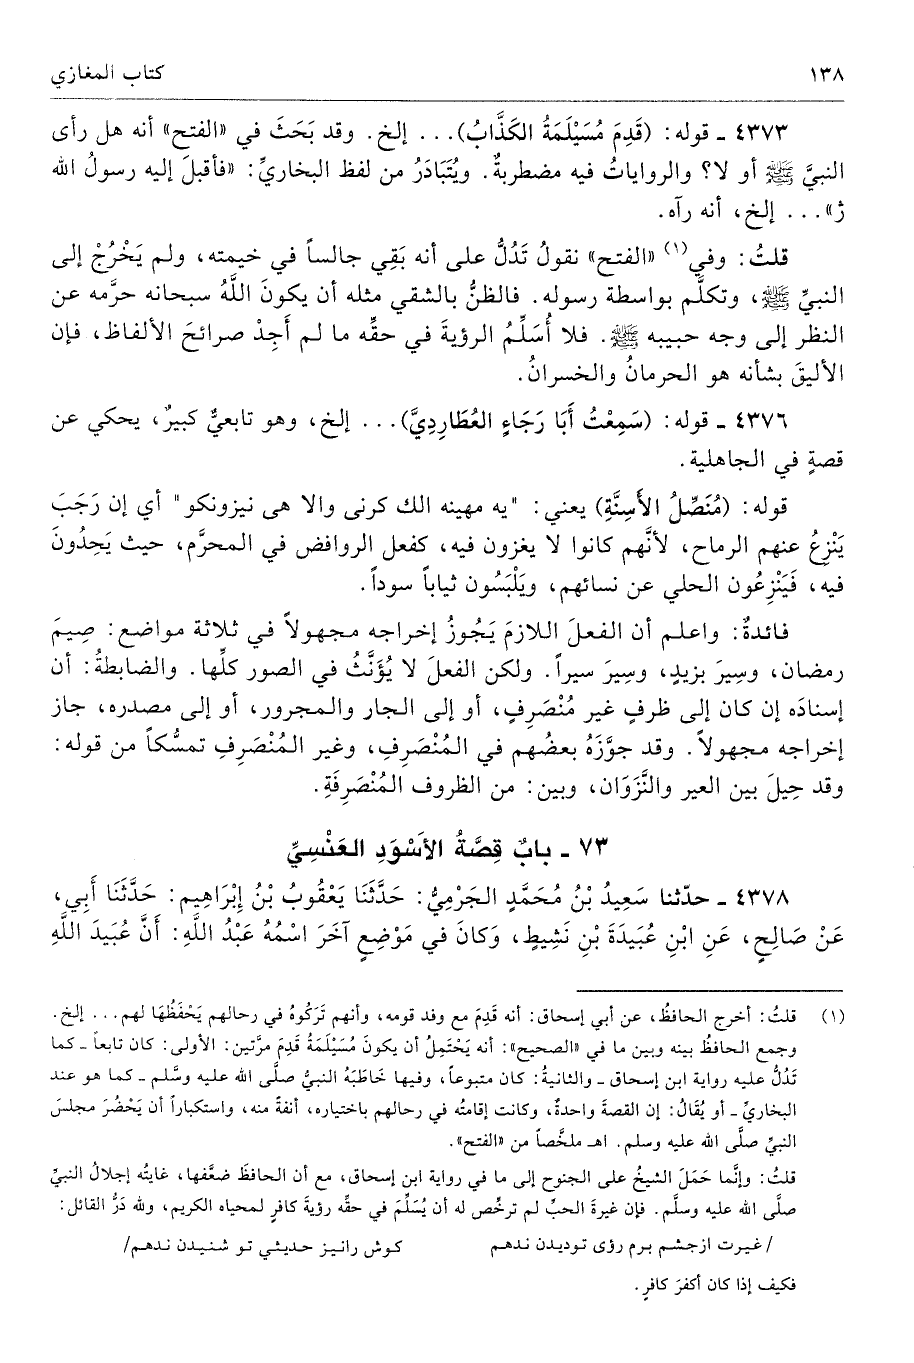 ١٣٨ كتاب المغازي
٤٣٧٣ ـ قوله: (قَدِمَ مُسَيْلَمَةُ الكَذَّابُ)... إلخ. وقد بَحَثَ في «الفتح» أنه هل رأى
النبيَّ ﷺ أو لا؟ والرواياتُ فيه مضطربةٌ. ويُتَبَادَرُ من لفظ البخاريِّ: «فأقبلَ إليه رسولُ الله
ژ»... إلخ، أنه رآه.
قلتُ: وفي(١) «الفتح» نقولُ تَدُلُّ على أنه بَقِي جالساً في خيمته، ولم يَخْرُجْ إلى
النبيِّ ﷺ، وتكلَّم بواسطة رسوله. فالظنُّ بالشقي مثله أن يكونَ اللَّهُ سبحانه حرَّمه عن
النظر إلى وجه حبيبه ﷺ. فلا أُسَلِّمُ الرؤيةَ في حقِّه ما لم أَجِدْ صرائحَ الألفاظ، فإن
الأليقَ بشأنه هو الحرمانُ والخسرانُ.
٤٣٧٦ ـ قوله: (سَمِعْتُ أَبَا رَجَاءٍ العُطَارِدِيَّ)... إلخ، وهو تابعيٌّ كبيرٌ، يحكي عن
قصةٍ في الجاهلية.
قوله: (مُنَصِّلُ الأَسِنَّةِ) يعني: "يه مهينه الك كرنى والا هى نيزونكو" أي إن رَجَبَ
يَنْزِعُ عنهم الرماح، لأنَّهم كانوا لا يغزون فيه، كفعل الروافض في المحرَّم، حيث يَحِدُّونَ
فيه، فَيَنْزِعُون الحلي عن نسائهم، ويَلْبَسُون ثياباً سوداً.
فائدةٌ: واعلم أن الفعلَ اللازمَ يَجُوزُ إخراجه مجهولاً في ثلاثة مواضع: صِيمَ
رمضان، وسِيرَ بزيدٍ، وسِيرَ سيراً. ولكن الفعلَ لا يُؤَنَّثُ في الصور كلِّها. والضابطةُ: أن
إسنادَه إن كان إلى ظرفٍ غير مُنْصَرِفٍ، أو إلى الجار والمجرور، أو إلى مصدره، جاز
إخراجه مجهولاً. وقد جوَّزَهُ بعضُهم في المُنْصَرِفِ، وغير المُنْصَرِفِ تمسُّكاً من قوله:
وقد حِيلَ بين العير والنَّزَوَان، وبين: من الظروف المُنْصَرِفَةِ.
٧٣ ـ بابُ قِصَّةُ الأَسْوَدِ العَنْسِيِّ
٤٣٧٨ ـ حدّثنا سَعِيدُ بْنُ مُحَمَّدٍ الجَرْمِيُّ: حَدَّثَنَا يَعْقُوبُ بْنُ إِبْرَاهِيم: حَدَّثَنَا أَبِي،
عَنْ صَالِحٍ، عَنِ ابْنِ عُبَيدَةَ بْنِ نَشِيطٍ، وَكانَ في مَوْضِعٍ آخَرَ اسْمُهُ عَبْدُ اللَّهِ: أَنَّ عُبَيدَ اللَّهِ
(١) قلتُ: أخرج الحافظُ، عن أبي إسحاق: أنه قَدِمَ مع وفد قومه، وأنهم تَرَكُوهُ في رحالهم يَحْفَظُهَا لهم... إلخ.
وجمع الحافظُ بينه وبين ما في «الصحيح»: أنه يَحْتَمِلُ أن يكونَ مُسَيْلَمَةُ قَدِمَ مرَّتين: الأولى: كان تابعاً ـ كما
تَدُلُّ عليه رواية ابن إسحاق ـ والثانيةُ: كان متبوعاً، وفيها خَاطَبَهُ النبيُّ صلَّى الله عليه وسَّلم ـ كما هو عند
البخاريِّ ـ أو يُقَالُ: إن القصةَ واحدةٌ، وكانت إقامتُه في رحالهم باختياره، أنفةً منه، واستكباراً أن يَحْضُرَ مجلسَ
النبيِّ صلَّى الله عليه وسلم. اهـ ملخَّصاً من «الفتح».
قلتُ: وإنَّما حَمَلَ الشيخُ على الجنوح إلى ما في رواية ابن إسحاق، مع أن الحافظَ ضعَّفها، غايتُه إجلالُ النبيِّ
صلَّى الله عليه وسلَّم. فإن غيرةَ الحبِّ لم ترخِّص له أن يُسَلِّمَ في حقِّه رؤيةَ كافرٍ لمحياه الكريم، ولله دَرُّ القائل:
/غيرت ازجشم برم رؤى توديدن ندهم كوش رانيز حديثي تو شنيدن ندهم/
فكيف إذا كان أكفرَ كافرٍ.